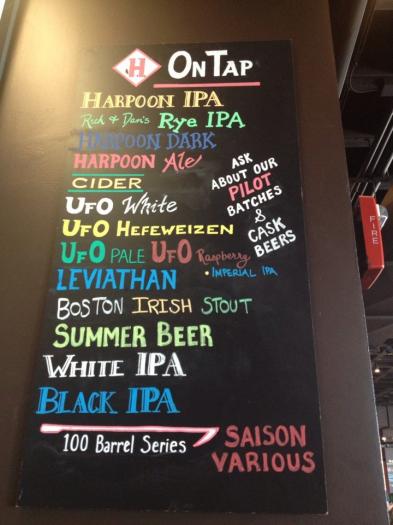 H ON TAP
HARPOON IPA
Rich & Dan's Rye IPA
HARPOON DARK
HARPOON Ale
CIDER
UFO White
UFO HEFEWEIZEN
UFO PALE UFO Raspberry
LEVIATHAN • IMPERIAL IPA
BOSTON IRISH STOUT
SUMMER BEER
WHITE IPA
BLACK IPA
100 Barrel Series SAISON
VARIOUS
ASK
ABOUT OUR
PILOT
BATCHES
&
CASK
BEERS
FIRE